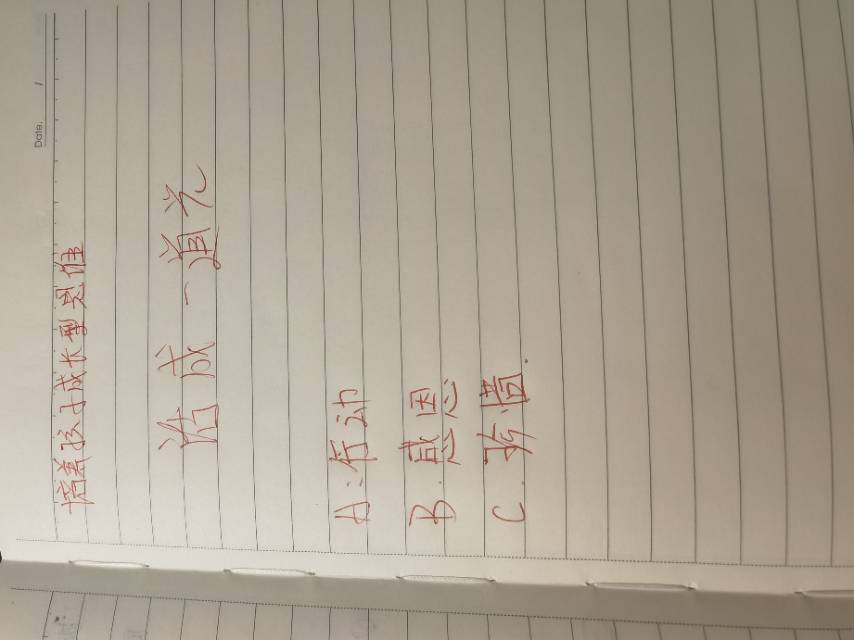 Date. /
培养孩子成长型思维
活成一道光
A:行动
B.感恩
C.珍惜.